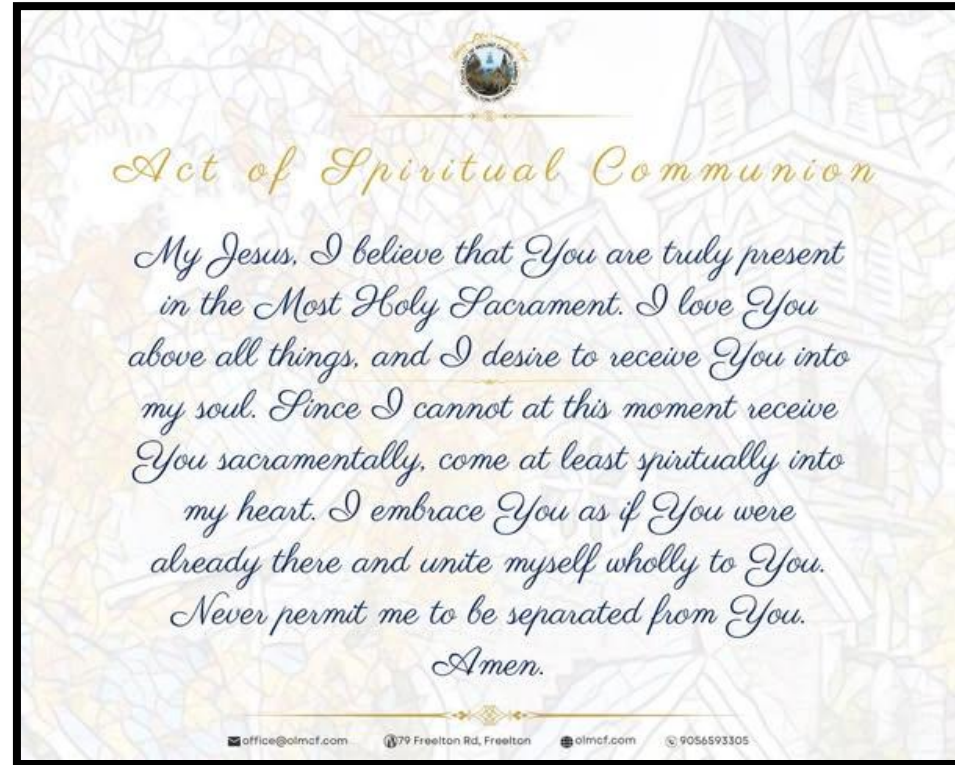 Act of Spiritual Communion
My Jesus, I believe that You are truly present
in the Most Holy Sacrament. I love You
above all things, and I desire to receive You into
my soul. Since I cannot at this moment receive
You sacramentally, come at least spiritually into
my heart. I embrace You as if You were
already there and unite myself wholly to You.
Never permit me to be separated from You.
Amen.
office@olmcf.com 79 Freelton Rd, Freelton olmcf.com 9056593305